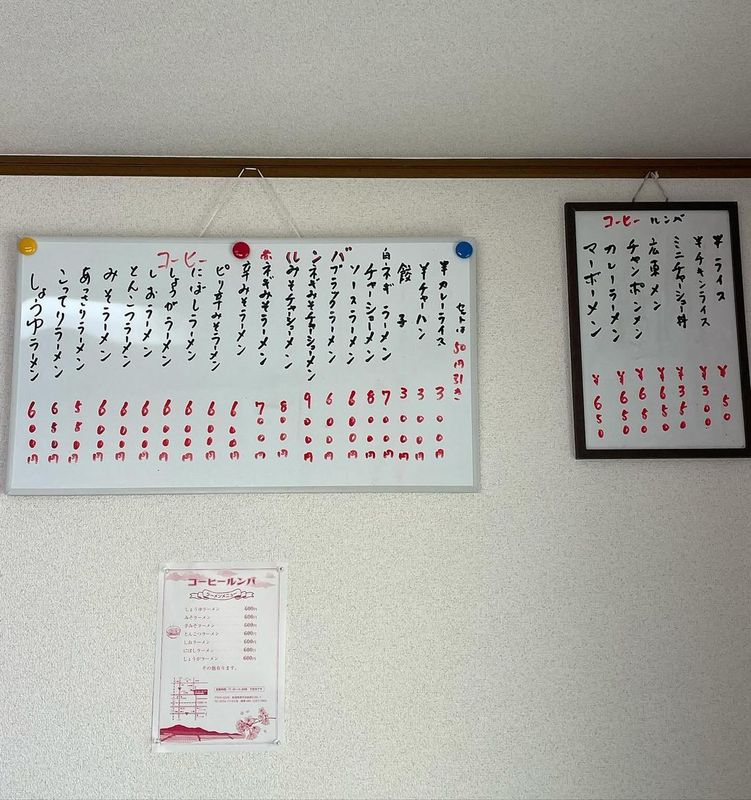 コーヒールンバ
セットは50円引き
半カレーライス 300円
半チャーハン 300円
餃子 300円
白ネギラーメン 700円
チャーシューメン 800円
ソースラーメン 600円
ブラックラーメン 600円
ネぎみそチャーシューメン 900円
みそチャーシューメン 800円
赤ネぎみそラーメン 700円
辛みそラーメン 600円
ピリ辛みそラーメン 600円
にぼしラーメン 600円
しょうがラーメン 600円
しおラーメン 600円
とんこつラーメン 600円
みそラーメン 600円
あっさりラーメン 550円
こってりラーメン 650円
しょうゆラーメン 600円
コーヒールンバ
半ライス ¥50
半チキンライス ¥300
ミニチャーシュー丼 ¥350
広東メン ¥650
チャンポンメン ¥650
カレーラーメン ¥650
マーボーメン ¥650
コーヒールンバ
ラーメンメニュー
しょうゆラーメン 600円
みそラーメン 600円
辛みそラーメン 600円
とんこつラーメン 600円
しおラーメン 600円
にぼしラーメン 600円
しょうがラーメン 600円
その他有ります。